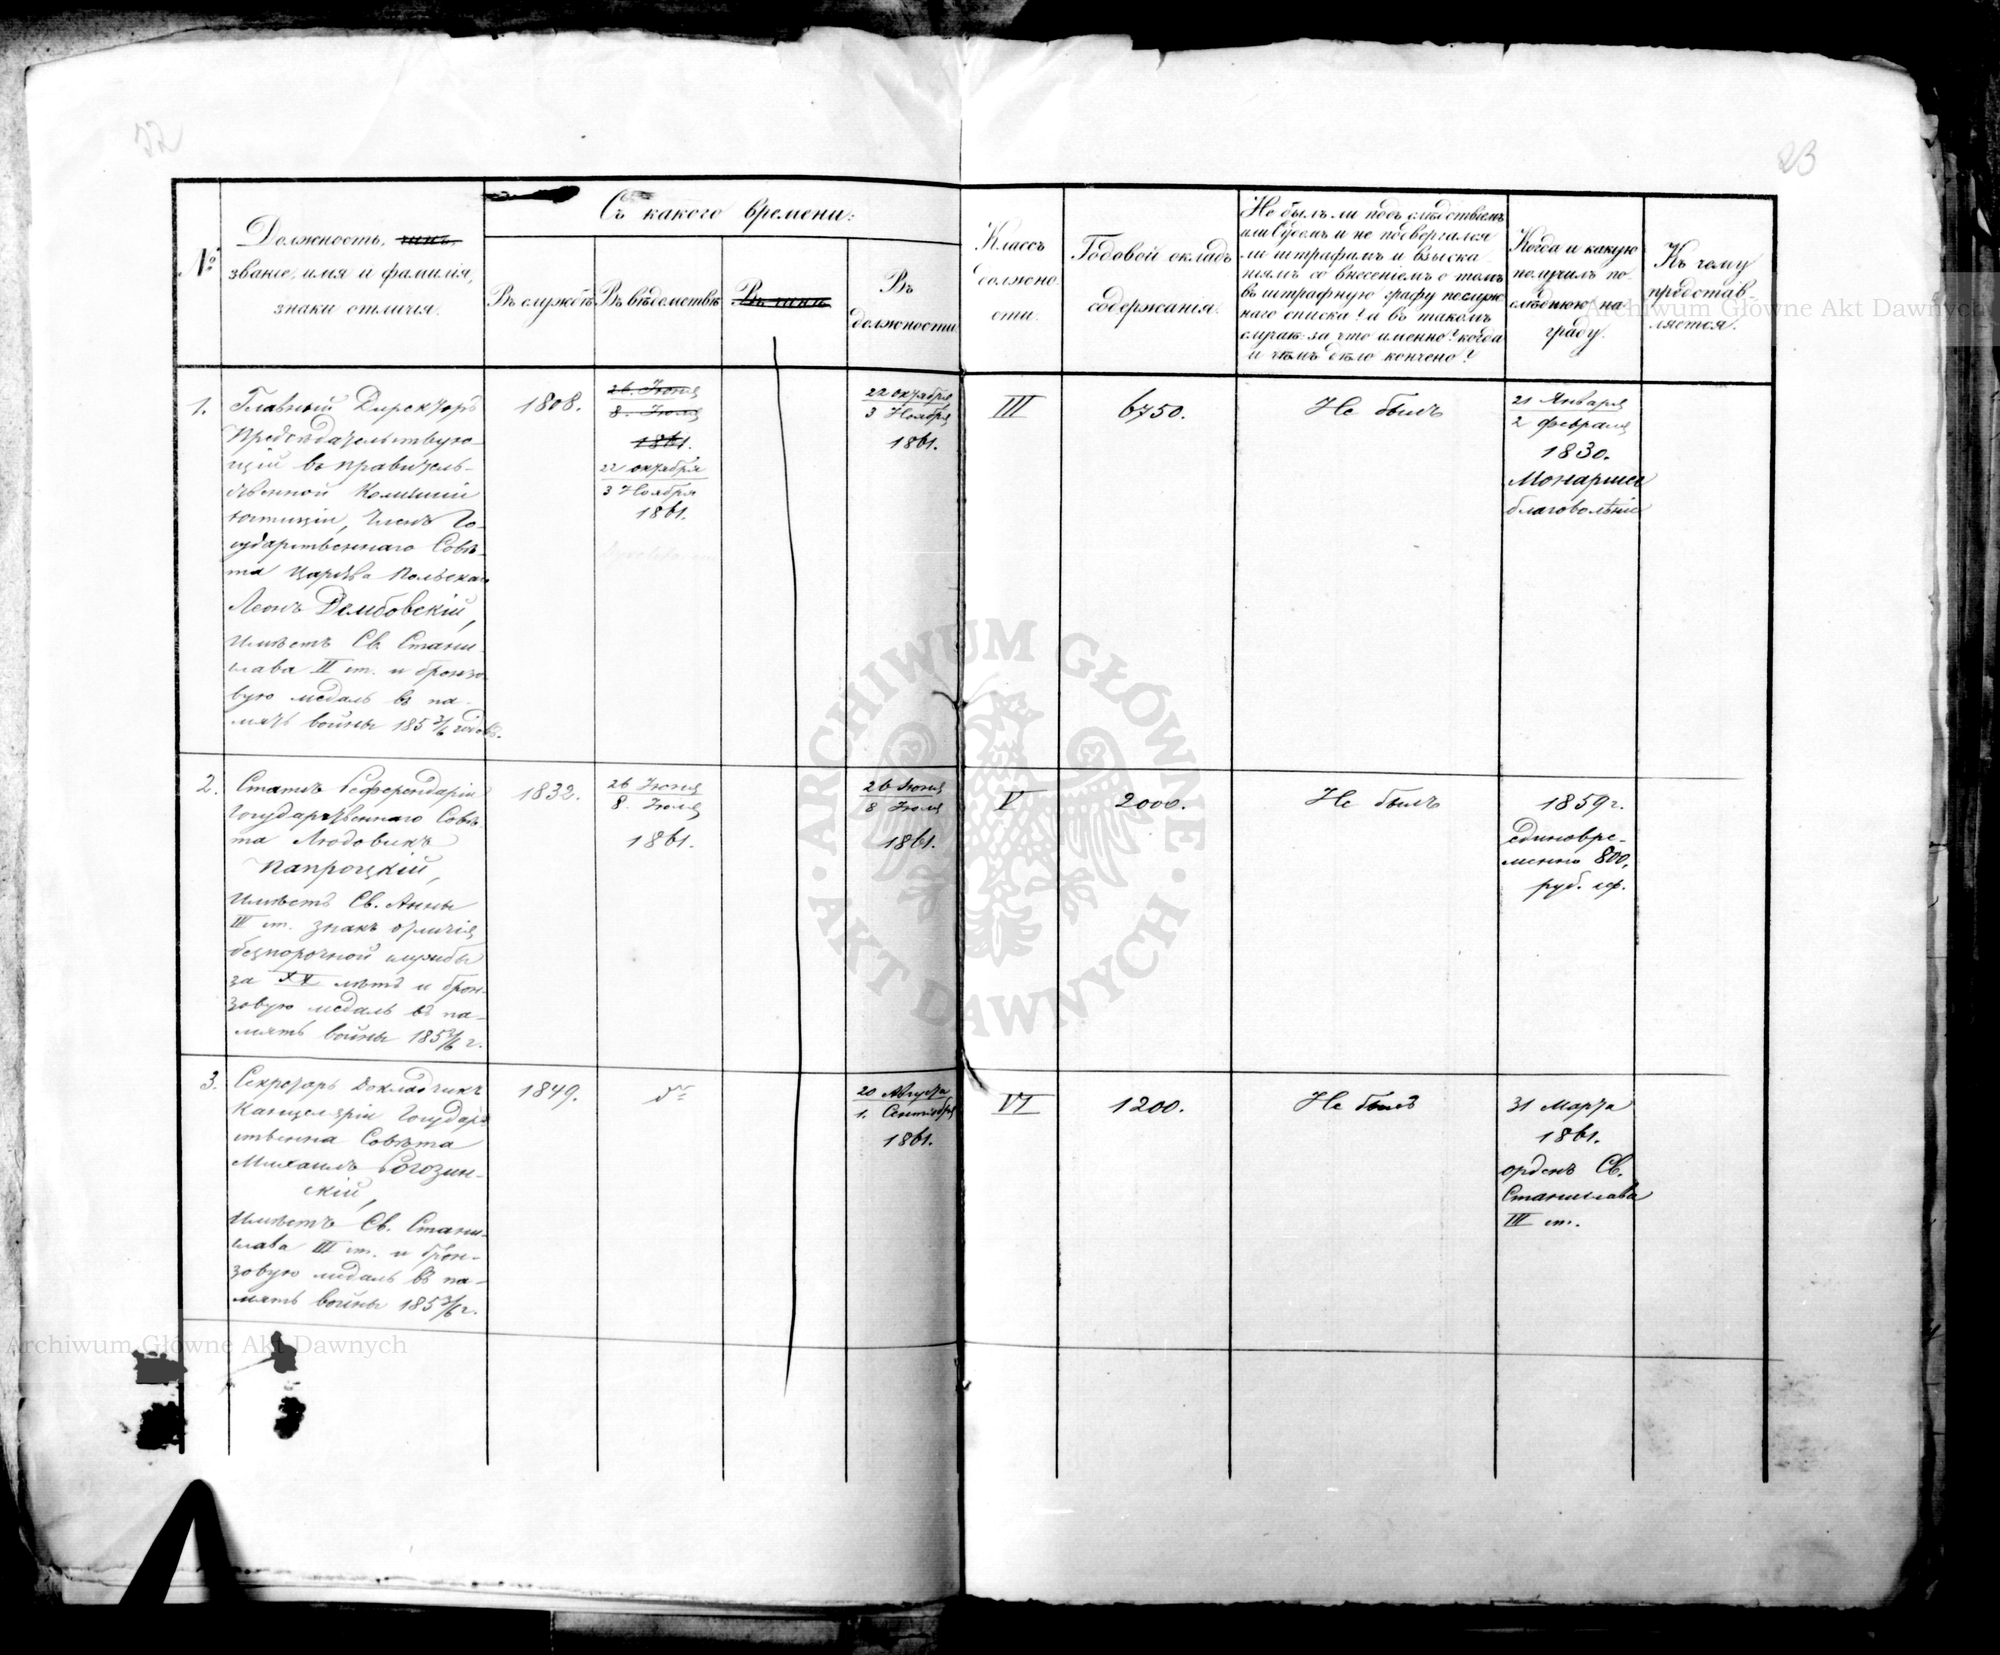 23
№
Должность, чинъ,
званіе, имя и фамилія,
знаки отличія.
Съ какого времени:
Въ службѣ
Въ вѣдомствѣ
Въ чинѣ
Въ
должности
Классъ
должно-
сти.
Годовой окладъ
содержанія.
Не былъ ли подъ слѣдствіемъ
или Судомъ и не подвергался
ли штрафамъ и взыска-
ніямъ со внесеніемъ о томъ
въ штрафную графу послуж-
наго списка? и въ такомъ
случаѣ: за что именно? когда
и чѣмъ дѣло кончено?
Когда и какую
получилъ по-
слѣднюю на-
граду.
Къ чему
представ-
ляется.
1.
Главный Директоръ
Предсѣдательствую-
щій въ Правитель-
ственной Коммисіи
Юстиціи, Членъ Го-
сударственнаго Совѣ-
та Царства Польскаго
Леонъ Дембовскій,
Имѣетъ Св. Стани-
слава II ст. и бронзо-
вую медаль въ па-
мять войны 185 3/6 годовъ.
1808.
26 Іюня
8 Іюля
1861.
22 Октября
3 Ноября
1861.
22 Октября
3 Ноября
1861.
III
6750.
Не былъ
21 Января
2 Февраля
1830.
Монаршее
благоволѣніе
2.
Статсъ Референдарій
Государственнаго Совѣ-
та Людовикъ
Папроцкій,
Имѣетъ Св. Анны
III ст. знакъ отличія
безпорочной службы
за XV лѣтъ и брон-
зовую медаль въ па-
мять войны 185 3/6 г.
1832.
26 Іюня
8 Іюля
1861.
26 Іюня
8 Іюля
1861.
V
2000.
Не былъ
1859 г.
единовре-
менно 800,
руб. сер.
3.
Секретарь Докладчикъ
Канцеляріи Государ-
ственна Совѣта
Михаилъ Рогозин-
скій,
Имѣетъ Св. Стани-
слава III ст. и брон-
зовую медаль въ па-
мять войны 185 3/6 г.
1849.
20 Августа
1. Сентября
1861.
VI
1200.
Не былъ
31 Марта
1861.
орденъ Св.
Станислава
III ст.
Archiwum Główne Akt Dawnych
ARCHIWUM GŁÓWNE
AKT DAWNYCH
Archiwum Główne Akt Dawnych